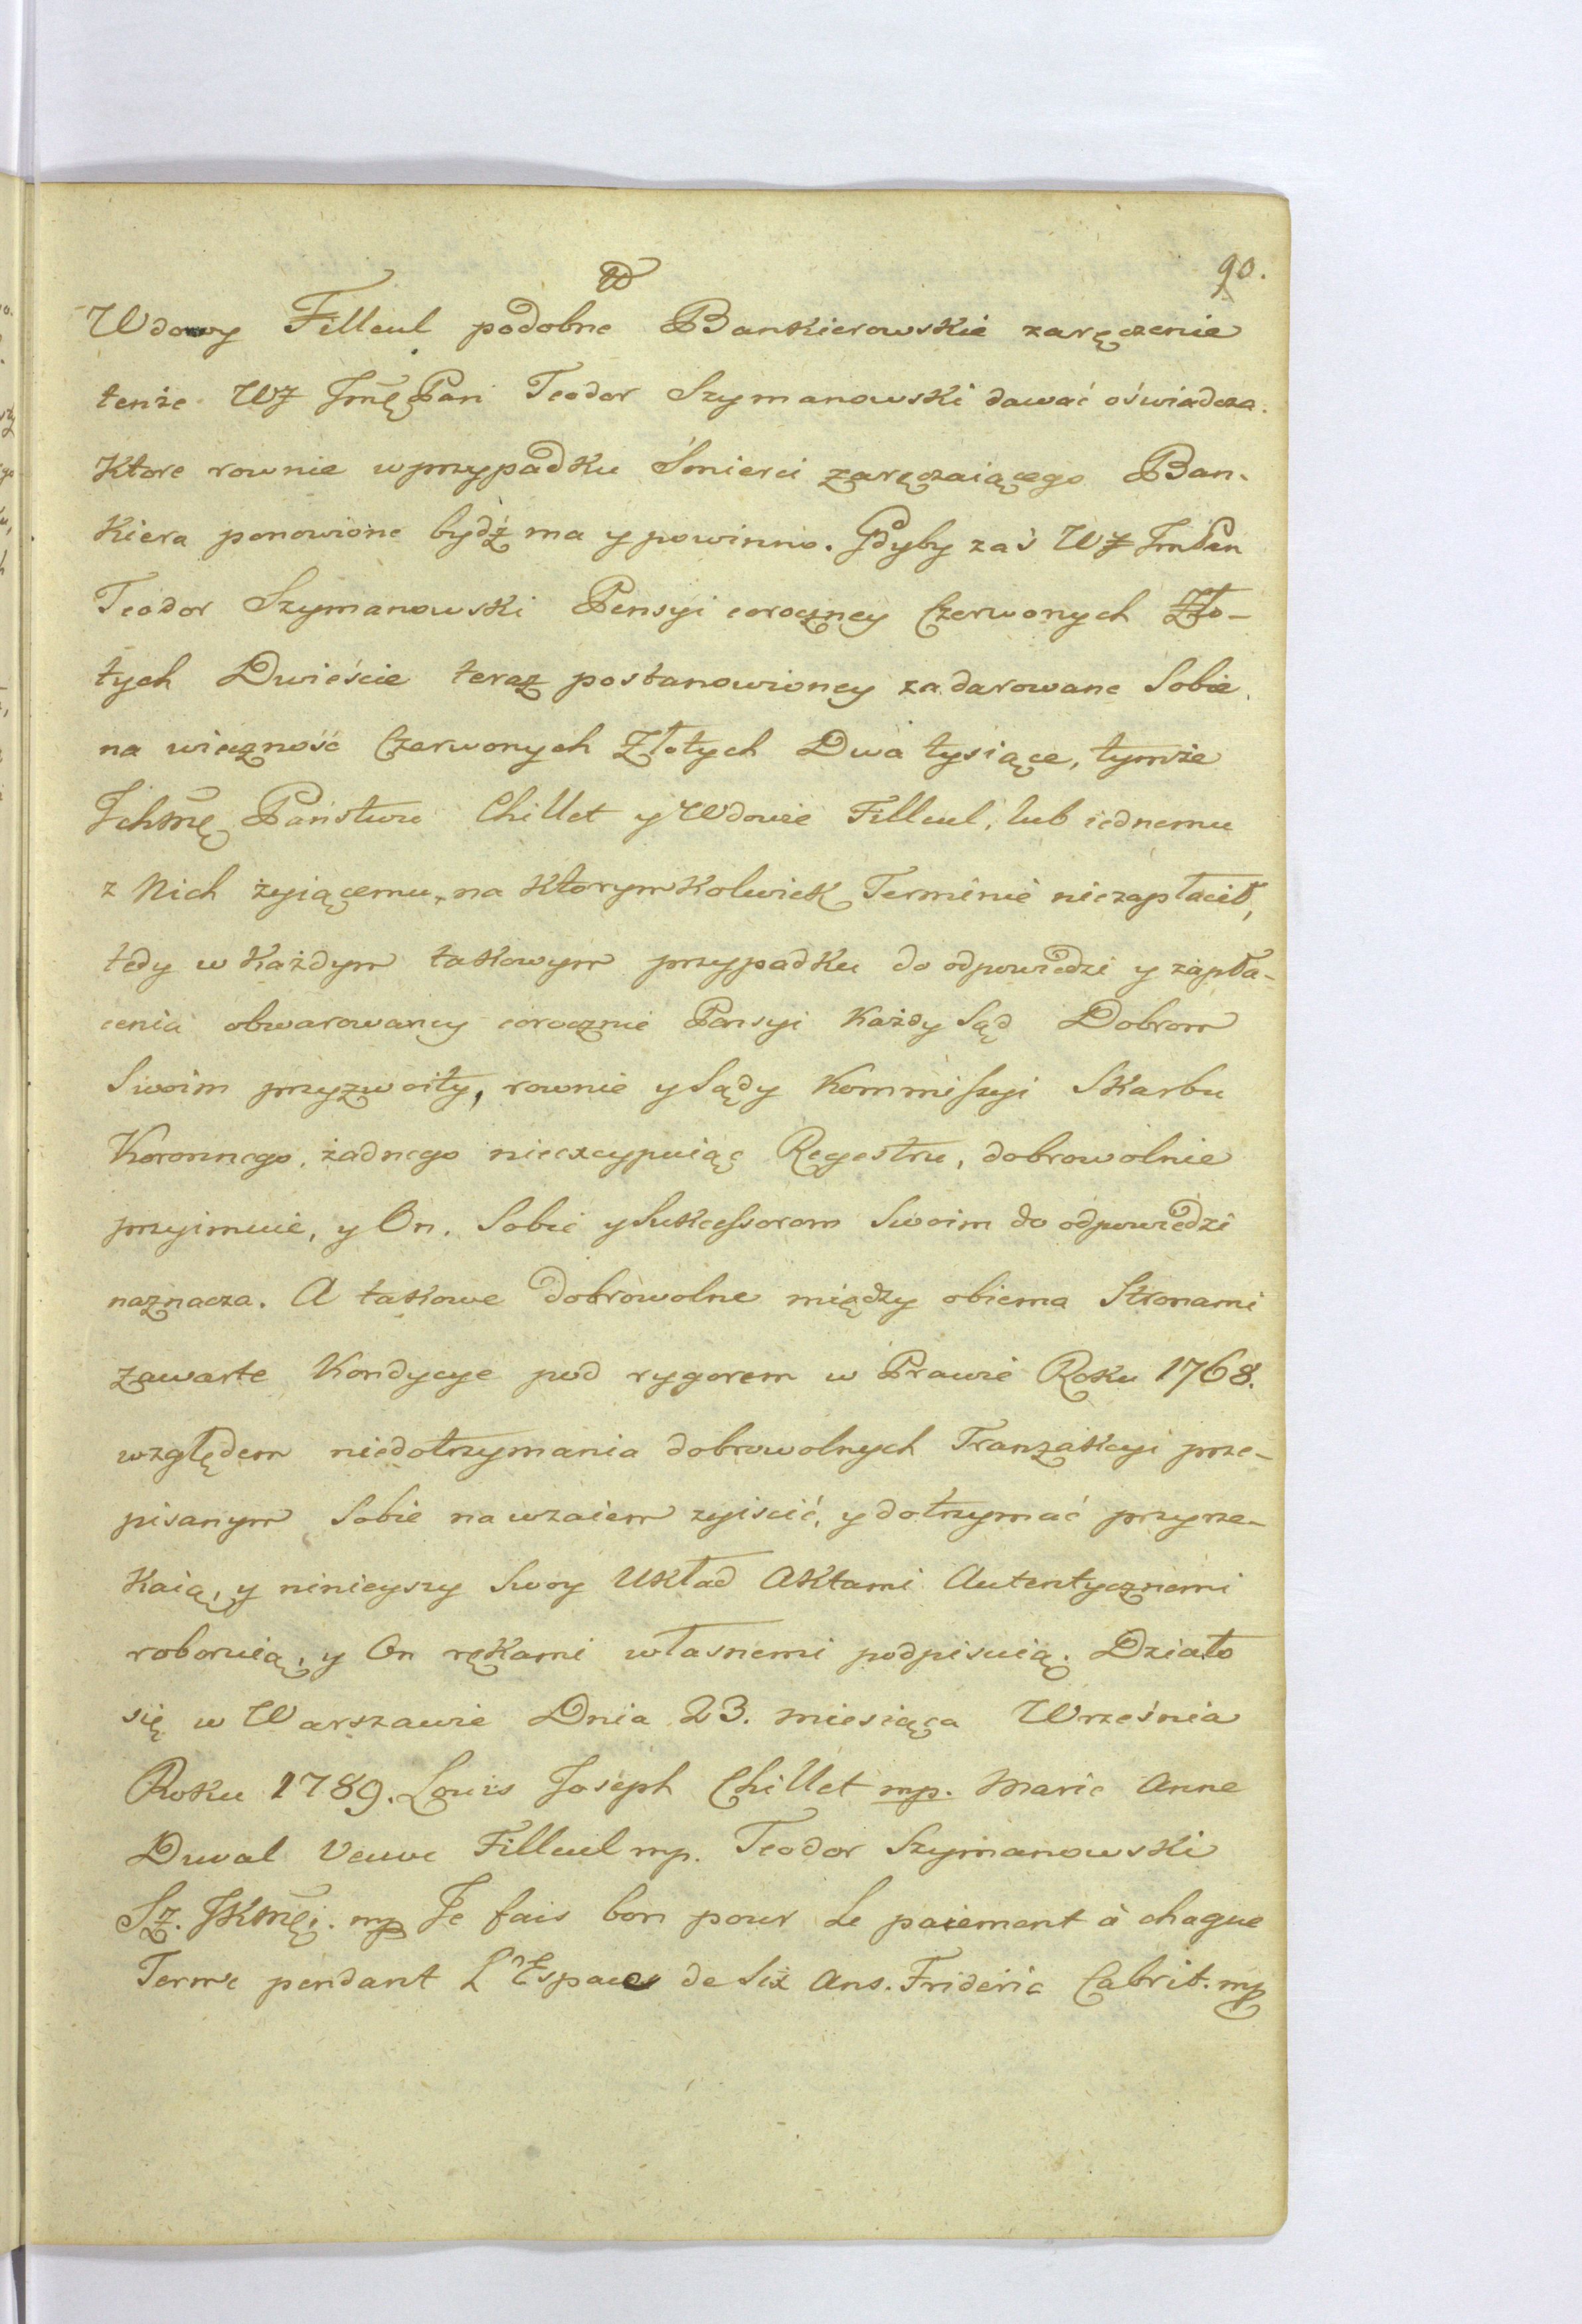 90.
Wdowy Filleul podobne Bankierowskie zaręczenie
tenże WJ Jmę Pan Teodor Szymanowski dawać oświadcza.
Ktore rownie w przypadku Śmierci zaręczaiącego Ban-
kiera ponowione bydź ma y powinno. Gdyby zaś WJ Jm Pan
Teodor Szymanowski Pensyi coroczney Czerwonych Zło-
tych Dwieście teraz postanowioney za darowane Sobie
na wieczność Czerwonych Złotych Dwa tysiące, tymże
Ichmę Państwu Chillet y Wdowie Filleul, lub iednemu
z Nich żyiącemu, na ktorymkolwiek Terminie niezapłacił,
tedy w każdym takowym przypadku do odpowiedzi y zapła-
cenia obwarowaney corocznie Pensyi każdy Sąd Dobrom
Swoim przyzwoity, rownie y Sądy Kommissyi Skarbu
Koronnego, żadnego nieexcypuiąc Regestru, dobrowolnie
przyimuie, y On. Sobie y Sukcessorom Swoim do odpowiedzi
naznacza. A takowe dobrowolne między obiema Stronami
zawarte Kondycye pod rygorem w Prawie Roku 1768.
względem niedotrzymania dobrowolnych Tranzakcyi prze-
pisanym Sobie nawzaiem zyiscić, y dotrzymać przyrze-
kaią, y ninieyszy Swoy Układ Aktami Autentycznemi
roboruią, y On rękami własnemi podpisuią. Działo
się w Warszawie Dnia 23. miesiąca Września
Roku 1789. Louis Joseph Chillet mp. Marie Anne
Duval Veuve Filleul mp. Teodor Szymanowski
Sz. JKmęi. mp Je fais bon pour Le paiement à chaque
Terme pendant L'Espace de Six Ans. Frideric Cabrit. mp